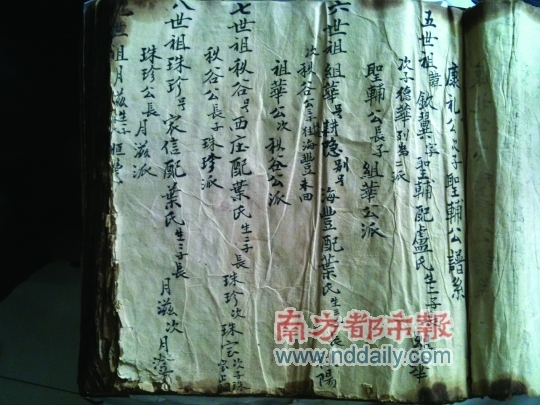 康礼公次子聖輔公譜系
五世祖諱欽翼字聖輔配盧氏生二子長組華
次子穏華別卷二派
聖輔公長子組華公派
六世祖組華号耕隐別号海豐配葉氏生
次秋谷公子往海豐未回
祖華公次秋谷公派
七世祖秋谷号西庄配葉氏生二子長珠珍次珠宝
秋谷公長子珠珍派
八世祖珠珍号宗信配葉氏生二子長月滋次月
珠珍公長月滋派
世祖月滋
南方都市報
www.nddaily.com